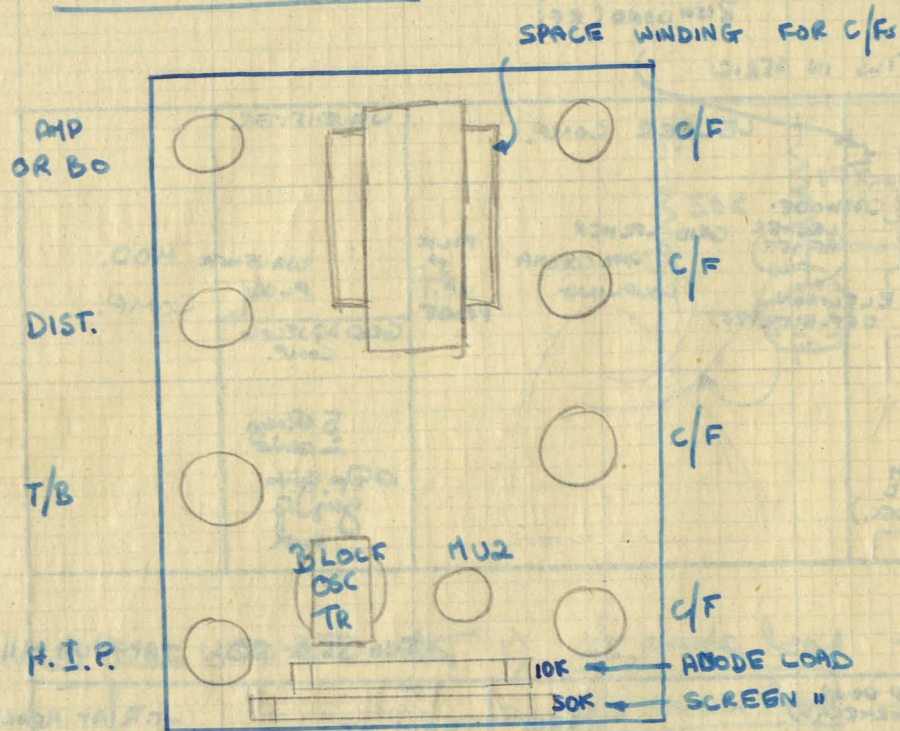 SPACE WINDING FOR C/Fs
AMP
OR BO
C/F
C/F
DIST.
C/F
T/B
BLOCK
OSC
TR
MU2
C/F
H.I.P.
10K
ANODE LOAD
50K
SCREEN "